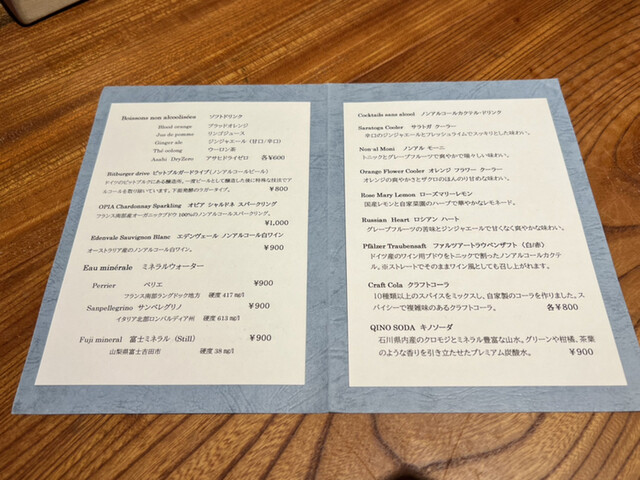 Boissons non alcoolisées ソフトドリンク
Blood orange ブラッドオレンジ
Jus de pomme リンゴジュース
Ginger ale ジンジャエール (甘口/辛口)
Thé oolong ウーロン茶
Asahi DryZero アサヒドライゼロ 各¥600
Bitburger drive ビットブルガードライブ(ノンアルコールビール)
¥800
OPIA Chardonnay Sparkling オピア シャルドネ スパークリング
フランス南部産オーガニックブドウ100%のノンアルコールスパークリング。
¥1,000
Edenvale Sauvignon Blanc エデンヴェール ノンアルコール白ワイン
オーストラリア産のノンアルコール白ワイン。 ¥900
Eau minérale ミネラルウォーター
Perrier ペリエ ¥900
フランス南部ラングドック地方 硬度 417 mg/l
Sanpellegrino サンペレグリノ ¥900
イタリア北部ロンバルディア州 硬度 613 mg/l
Fuji mineral 富士ミネラル (Still) ¥900
山梨県富士吉田市 硬度 38 mg/l
Cocktails sans alcool ノンアルコールカクテル・ドリンク
Saratoga Cooler サラトガ クーラー
辛口のジンジャエールとフレッシュライムでスッキリとした味わい。
Non-al Moni ノンアル モーニ
トニックとグレープフルーツで爽やかで瑞々しい味わい。
Orange Flower Cooler オレンジ フラワー クーラー
オレンジの爽やかさとザクロのほんのり甘めな味わい。
Rose Mary Lemon ローズマリーレモン
国産レモンと自家菜園のハーブで華やかなレモネード。
Russian Heart ロシアン ハート
グレープフルーツの苦味とジンジャエールで甘くなく爽やかな味わい。
Pfälzer Traubensaft ファルツアートラウベンザフト (白/赤)
ドイツ産のワイン用ブドウをトニックで割ったノンアルコールカクテ
ル。※ストレートでそのままワイン風としても召し上がれます。
Craft Cola クラフトコーラ
10種類以上のスパイスをミックスし、自家製のコーラを作りました。ス
パイシーで複雑味のあるクラフトコーラ。 各¥800
QINO SODA キノソーダ
石川県内産のクロモジとミネラル豊富な山水。グリーンや柑橘、茶葉
のような香りを引き立たせたプレミアム炭酸水。 ¥900